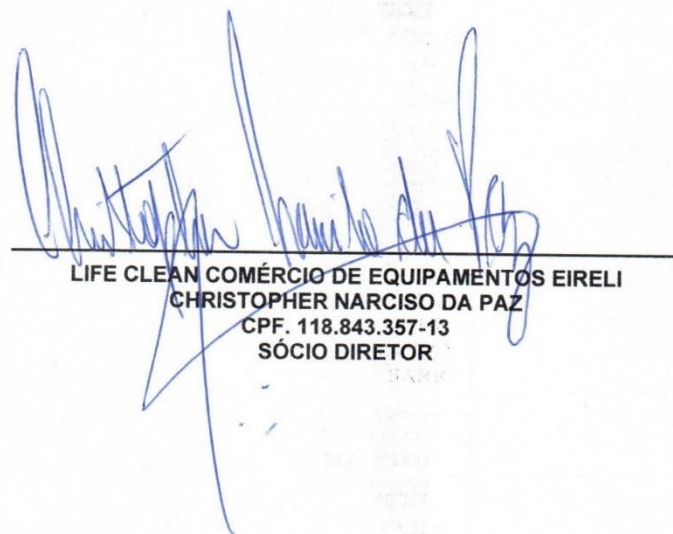 Christopher Narciso da Paz
LIFE CLEAN COMÉRCIO DE EQUIPAMENTOS EIRELI
CHRISTOPHER NARCISO DA PAZ
CPF. 118.843.357-13
SÓCIO DIRETOR